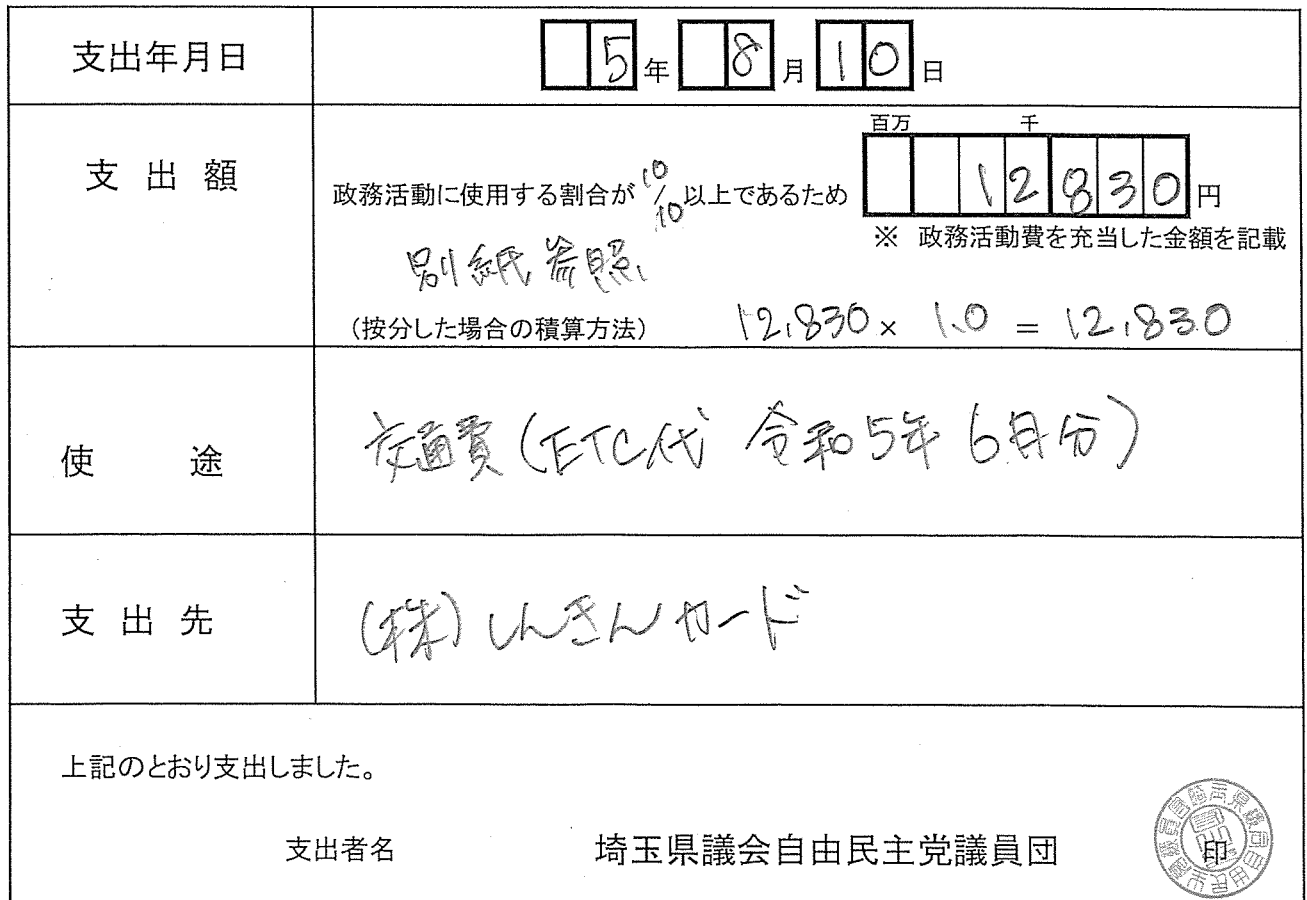 支出年月日 5年 8月 10日
百万 千
支出額 政務活動に使用する割合が 10/10 以上であるため 12830円
※ 政務活動費を充当した金額を記載
別紙参照
(按分した場合の積算方法) 12,830 × 1.0 = 12,830
使途 交通費(ETC代 令和5年 6月分)
支出先 (株)しんきんカード
上記のとおり支出しました。
支出者名 埼玉県議会自由民主党議員団 印